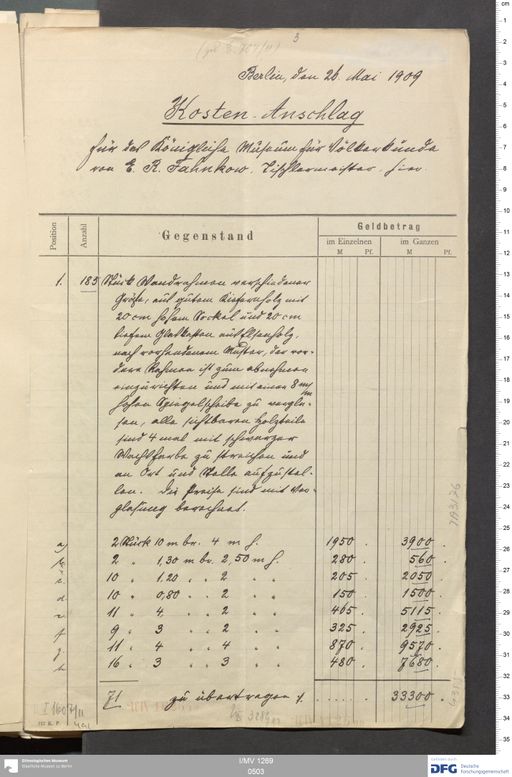 3
Berlin, den 26. Mai 1909
Kosten-Anschlag
für das Königliche Museum für Völkerkunde
von E. R. Fahnkow. Tischlermeister. hier.
Position Anzahl Gegenstand Geldbetrag
im Einzelnen im Ganzen
M Pf. M Pf.
1. 183 Stück Wandrahmen verschiedener
Größe, aus gutem Kiefernholz mit
20 cm hohem Sockel und 20 cm
tiefem Glaskasten aus Elsenholz,
nach vorhandenem Muster, der vor-
dere Rahmen ist zum abnehmen
einzurichten und mit einer 8 m/m
hohen Spiegelscheibe zu vergla-
sen, alle sichtbaren Holzteile
sind 4 mal mit schwarzer
Wachsfarbe zu streichen und
an Ort und Stelle aufzustel-
len. Die Preise sind mit Ver-
glasung berechnet.
a) 2 Stück 10 m br. 4 m h. 1950 . 3900 .
b. 2 " 1,30 m br. 2,50 m h. 280 . 560 .
c. 10 " 1.20 " " 2 " " 205 . 2050 .
d 10 " 0,80 " " 2 " " 150 . 1500 .
e. 11 " 4. " " 2 " " 465 . 5115 .
f 9 " 3 " " 2 " " 325 . 2925 .
g. 11 " 4 " " 4 " " 870 . 9570 .
h 16 " 3 " " 3 " " 480 . 7680 .
71 zu übertragen 1. 33300 .
Ethnologisches Museum
Staatliche Museen zu Berlin
I/MV 1269
0503
gefördert durch
DFG Deutsche
Forschungsgemeinschaft